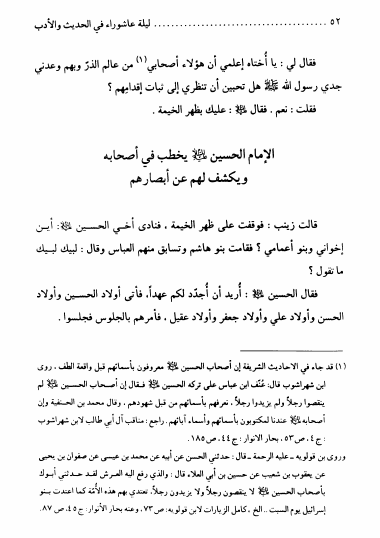 ٥٢ ........................................ ليلة عاشوراء في الحديث والأدب
فقال لي : يا أُختاه إعلمي أن هؤلاء أصحابي(١) من عالم الذرّ وبهم وعدني
جدي رسول الله ﷺ هل تحبين أن تنظري إلى ثبات إقدامِهم ؟
فقلت : نعم . فقال ﷺ : عليك بظهر الخيمة .
الإمام الحسين يخطب في أصحابه
ويكشف لهم عن أبصارهم
قالت زينب : فوقفت على ظهر الخيمة ، فنادى أخي الحسين : أين
إخواني وبنو أعمامي ؟ فقامت بنو هاشم وتسابق منهم العباس وقال : لبيك لبيك
ما تقول ؟
فقال الحسين : أُريد أن أُجدّد لكم عهداً، فأتى أولاد الحسين وأولاد
الحسن وأولاد علي وأولاد جعفر وأولاد عقيل ، فأمرهم بالجلوس فجلسوا .
(١) قد جاء في الاحاديث الشريفة إن أصحاب الحسين معروفون بأسمائهم قبل واقعة الطف ، روى
ابن شهراشوب قال: عُنِّف ابن عباس على تركه الحسين فـقال إن أصحاب الحسين لم
ينقصوا رجلاً ولم يزيدوا رجلاً ، نعرفهم بأسمائهم من قبل شهودهم ، وقال محمد بن الحنفية وإن
أصحابه عندنا لمكتوبون بأسمائهم وأسماء آبائهم . راجع : مناقب آل أبي طالب لابن شهراشوب
: ج٤ ، ص٥٣، بحار الأنوار : ج٤٤، ص١٨٥.
وروى بن قولويه ـ عليه الرحمة ـ قال : حدثني الحسن عن أبيه عن محمد بن عيسى عن صفوان بن يحيى
عن يعقوب بن شعيب عن حسين بن أبي العلاء قال : والذي رفع اليه العرش لقـد حـدثني أبـوك
بأصحاب الحسين لا ينقصون رجلاً ولا يزيدون رجلاً، تعتدي بهم هذه الأُمّة كما اعتدت بـنو
إسرائيل يوم السبت .. الخ ، كامل الزيارات لابن قولويه: ص٧٣، وعنه بحار الأنوار: ج٤٥، ص ٨٧.